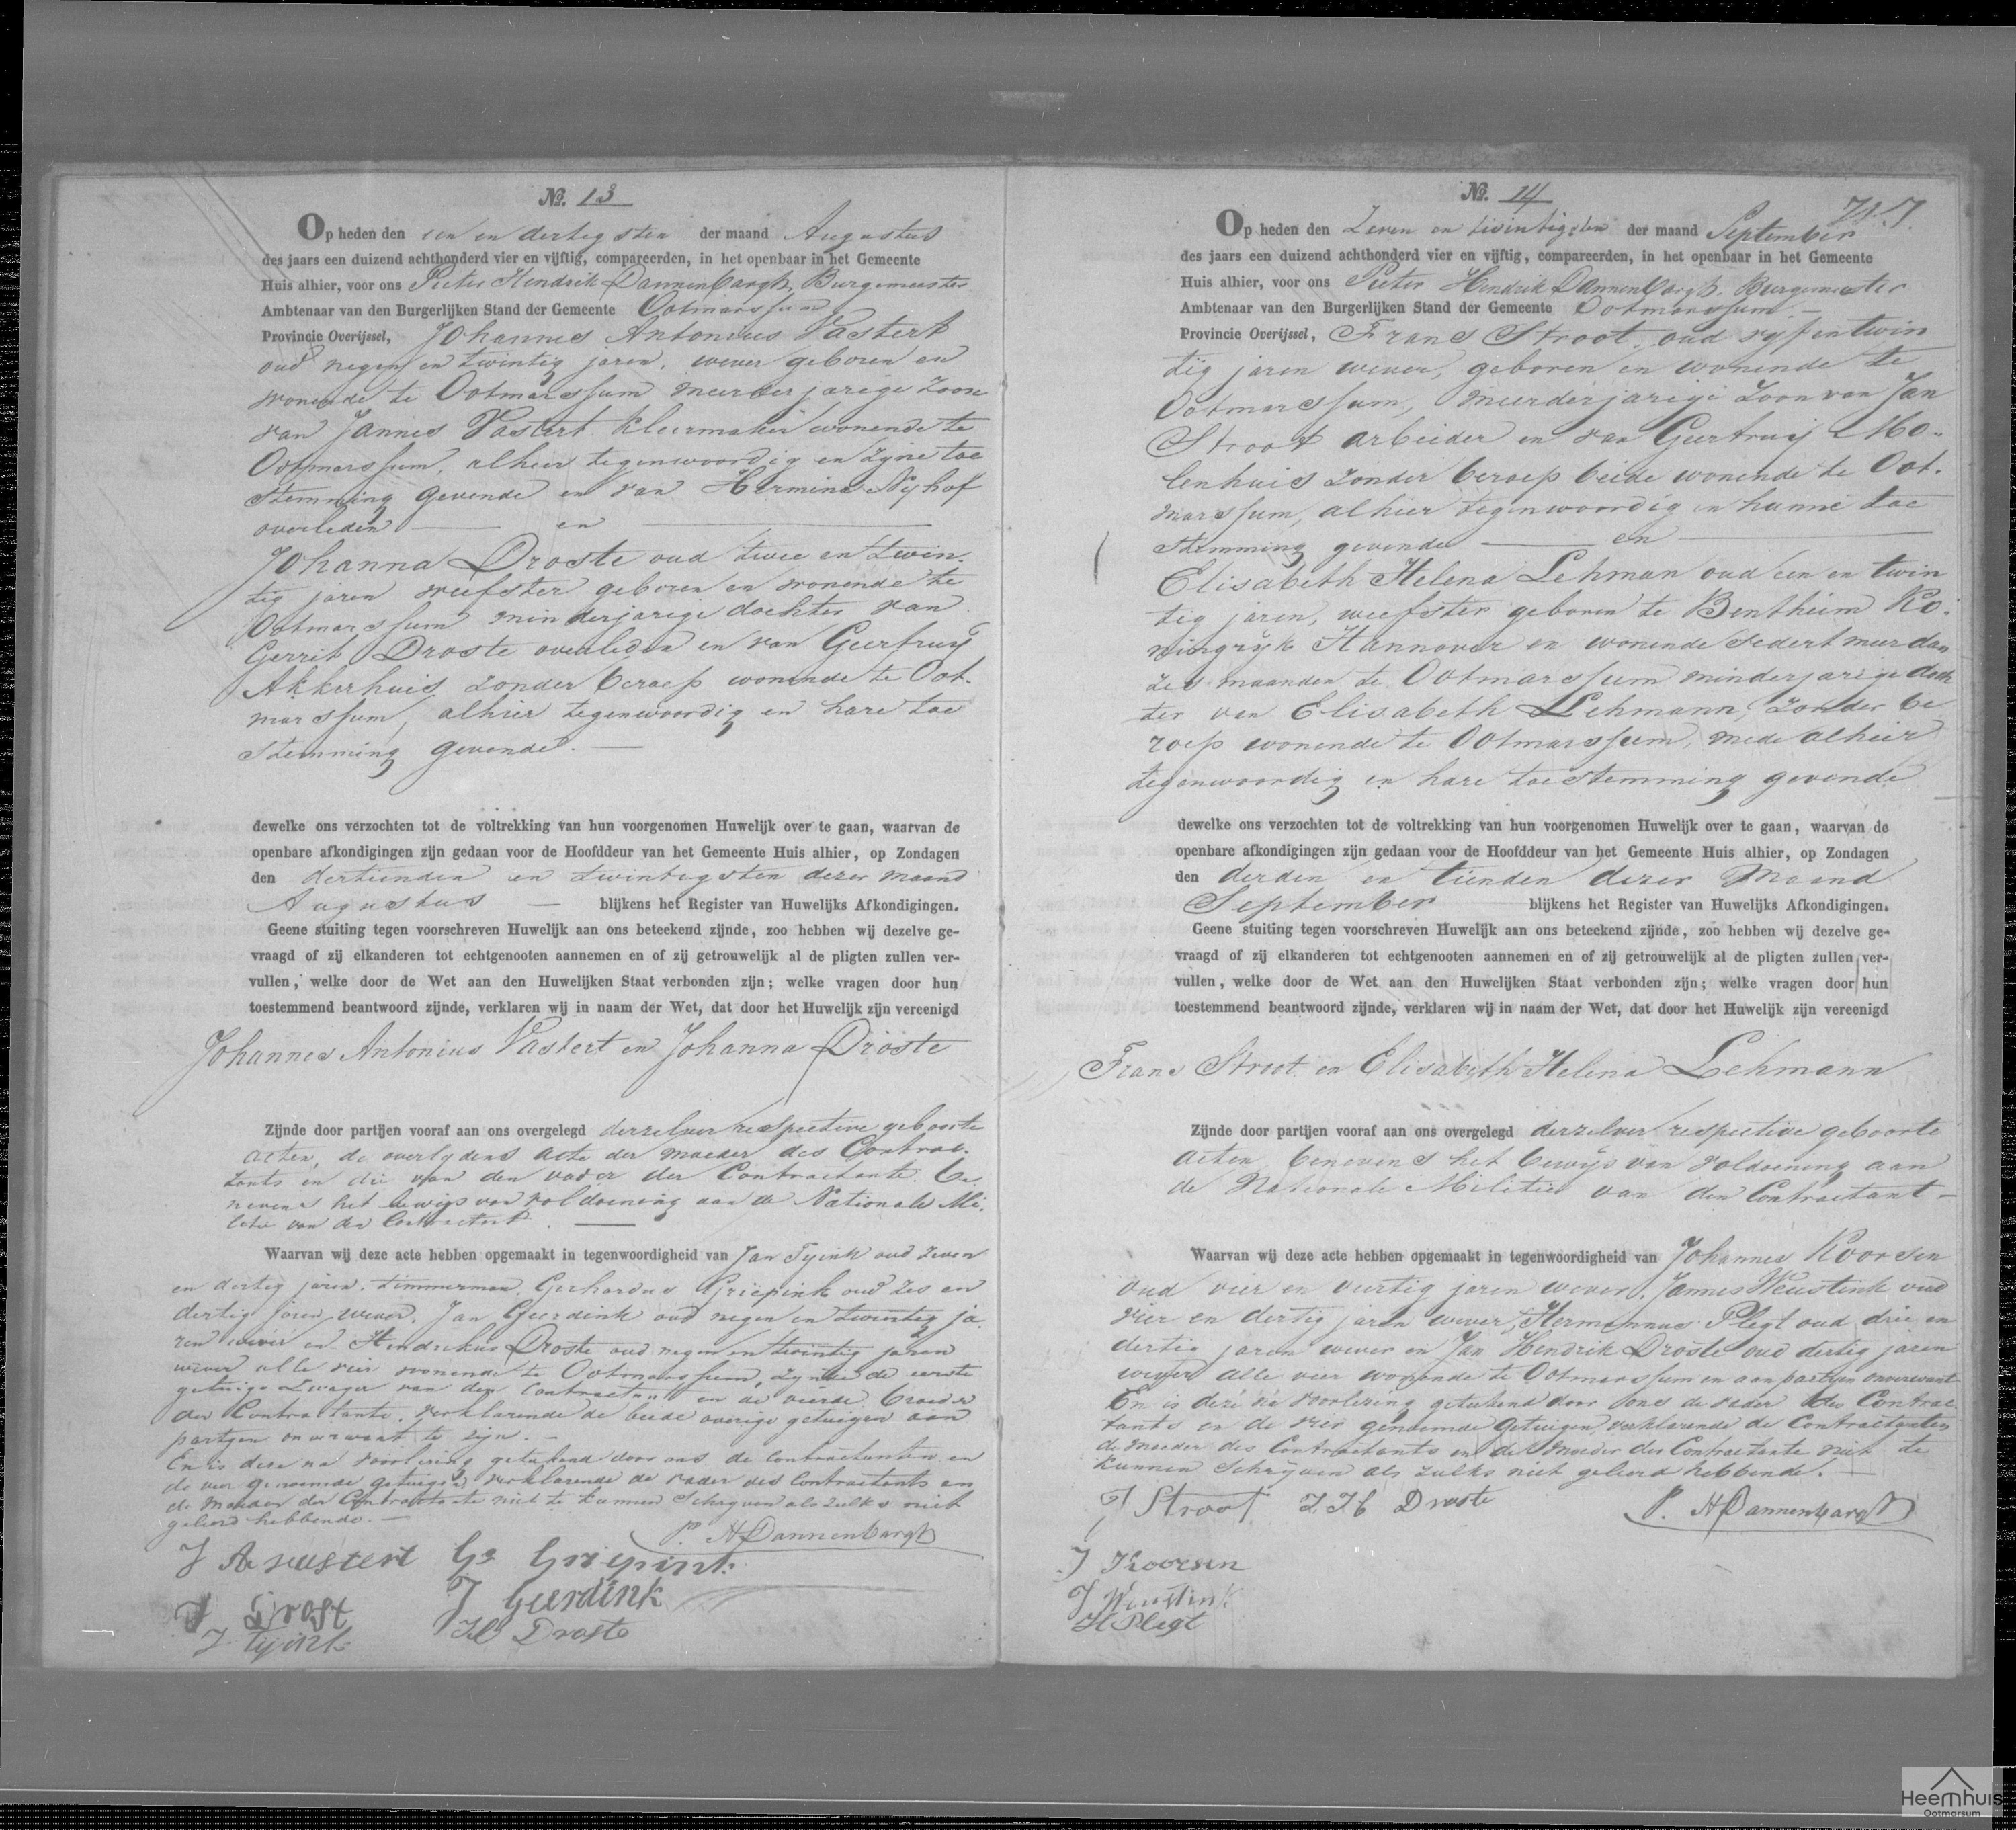 No. 13
Op heden den een en dertigsten der maand Augustus
des jaars een duizend achthonderd vier en vijftig, compareerden, in het openbaar in het Gemeente
Huis alhier, voor ons Pieter Hendrik Dannenbargh, Burgemeester
Ambtenaar van den Burgerlijken Stand der Gemeente Ootmarssum
Provincie Overijssel, Johannes Antonius Vastert
oud negen en twintig jaren, wever geboren en
wonende te Ootmarssum meerderjarige zoon
van Jannes Vastert kleermaker wonende te
Ootmarssum, alhier tegenwoordig en zijne toe
stemming gevende en van Hermina Nijhof
overleden — en —
Johanna Droste oud twee en twin
tig jaren weefster geboren en wonende te
Ootmarssum minderjarige dochter van
Gerrit Droste overleden en van Geertruij
Akkerhuis zonder beroep wonende te Oot-
marssum, alhier tegenwoordig en hare toe
stemming gevende. —
dewelke ons verzochten tot de voltrekking van hun voorgenomen Huwelijk over te gaan, waarvan de
openbare afkondigingen zijn gedaan voor de Hoofddeur van het Gemeente Huis alhier, op Zondagen
den dertienden en twintigsten dezer maand
Augustus — blijkens het Register van Huwelijks Afkondigingen.
Geene stuiting tegen voorschreven Huwelijk aan ons beteekend zijnde, zoo hebben wij dezelve ge-
vraagd of zij elkanderen tot echtgenooten aannemen en of zij getrouwelijk al de pligten zullen ver-
vullen, welke door de Wet aan den Huwelijken Staat verbonden zijn; welke vragen door hun
toestemmend beantwoord zijnde, verklaren wij in naam der Wet, dat door het Huwelijk zijn vereenigd
Johannes Antonius Vastert en Johanna Droste
Zijnde door partijen vooraf aan ons overgelegd derzelver respective geboorte
acten, de overlydens acte der moeder des Contrac-
tants en die van den vader der Contractante be
nevens het bewijs van voldoening aan de Nationale Mi-
litie van den Contractant. —
Waarvan wij deze acte hebben opgemaakt in tegenwoordigheid van Jan Tyink oud zeven
en dertig jaren, timmerman, Gerhardus Griepink oud zes en
dertig jaren wever, Jan Geerdink oud negen en twintig ja-
ren wever en Hendrikus Droste oud negen en twintig jaren
wever alle vier wonende te Ootmarssum, zynde de eerste
getuige Zwager van den Contractant en de vierde broeder
der Contractante, verklarende de beide overige getuigen aan
partyen onverwant te zijn. —
En is deze na voorlezing geteekend door ons de Contractanten en
de vier genoemde getuigen verklarende de vader des Contractants en
de moeder der Contractante niet te kunnen Schryven als zulks niet
geleerd hebbende. —
P. H Dannenbargh
J A vastert Gs Griepink
J Drost J Geerdink
J Tijink H Droste
No. 14
Op heden den Zeven en twintigsten der maand September
des jaars een duizend achthonderd vier en vijftig, compareerden, in het openbaar in het Gemeente
Huis alhier, voor ons Pieter Hendrik Dannenbargh. Burgemeester
Ambtenaar van den Burgerlijken Stand der Gemeente Ootmarssum —
Provincie Overijssel, Frans Stroot, oud vyf en twin
tig jaren wever, geboren en wonende te
Ootmarssum, meerderjarige zoon van Jan
Stroot arbeider en van Geertruij Mo-
lenhuis zonder beroep beide wonende te Oot-
marssum, alhier tegenwoordig en hunne toe
stemming gevende — en —
Elisabeth Helena Lehman oud een en twin
tig jaren, weefster geboren te Bentheim Ko-
ningryk Hannover en wonende sedert meer dan
zes maanden te Ootmarssum minderjarige doch
ter van Elisabeth Lehmann, zonder be
roep wonende te Ootmarssum, mede alhier
tegenwoordig en hare toestemming gevende
dewelke ons verzochten tot de voltrekking van hun voorgenomen Huwelijk over te gaan, waarvan de
openbare afkondigingen zijn gedaan voor de Hoofddeur van het Gemeente Huis alhier, op Zondagen
den derden en tienden dezer Maand
September blijkens het Register van Huwelijks Afkondigingen.
Geene stuiting tegen voorschreven Huwelijk aan ons beteekend zijnde, zoo hebben wij dezelve ge-
vraagd of zij elkanderen tot echtgenooten aannemen en of zij getrouwelijk al de pligten zullen ver-
vullen, welke door de Wet aan den Huwelijken Staat verbonden zijn; welke vragen door hun
toestemmend beantwoord zijnde, verklaren wij in naam der Wet, dat door het Huwelijk zijn vereenigd
Frans Stroot en Elisabeth Helena Lehmann
Zijnde door partijen vooraf aan ons overgelegd derzelver respective geboorte
acten, benevens het bewijs van voldoening aan
de Nationale Militie van den Contractant —
Waarvan wij deze acte hebben opgemaakt in tegenwoordigheid van Johannes Koorsen
oud vier en veertig jaren wever, Jannes Weustink oud
vier en dertig jaren wever, Hermannus Plegt oud drie en
dertig jaren wever en Jan Hendrik Droste oud dertig jaren
wever alle vier wonende te Ootmarssum en aan partyen onverwant
En is deze na voorlezing geteekend door ons de vader des Contrac
tants en de vier genoemde getuigen verklarende de Contractanten
de moeder des Contractants en de moeder der Contractante niet te
kunnen Schryven als zulks niet geleerd hebbende. —
J Stroot J H Droste P. H Dannenbargh
J Koorsen
J Weustink
H Plegt
Heemhuis
Ootmarsum